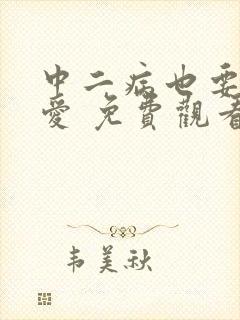 中二病也要
愛 免費觀看
韦美秋